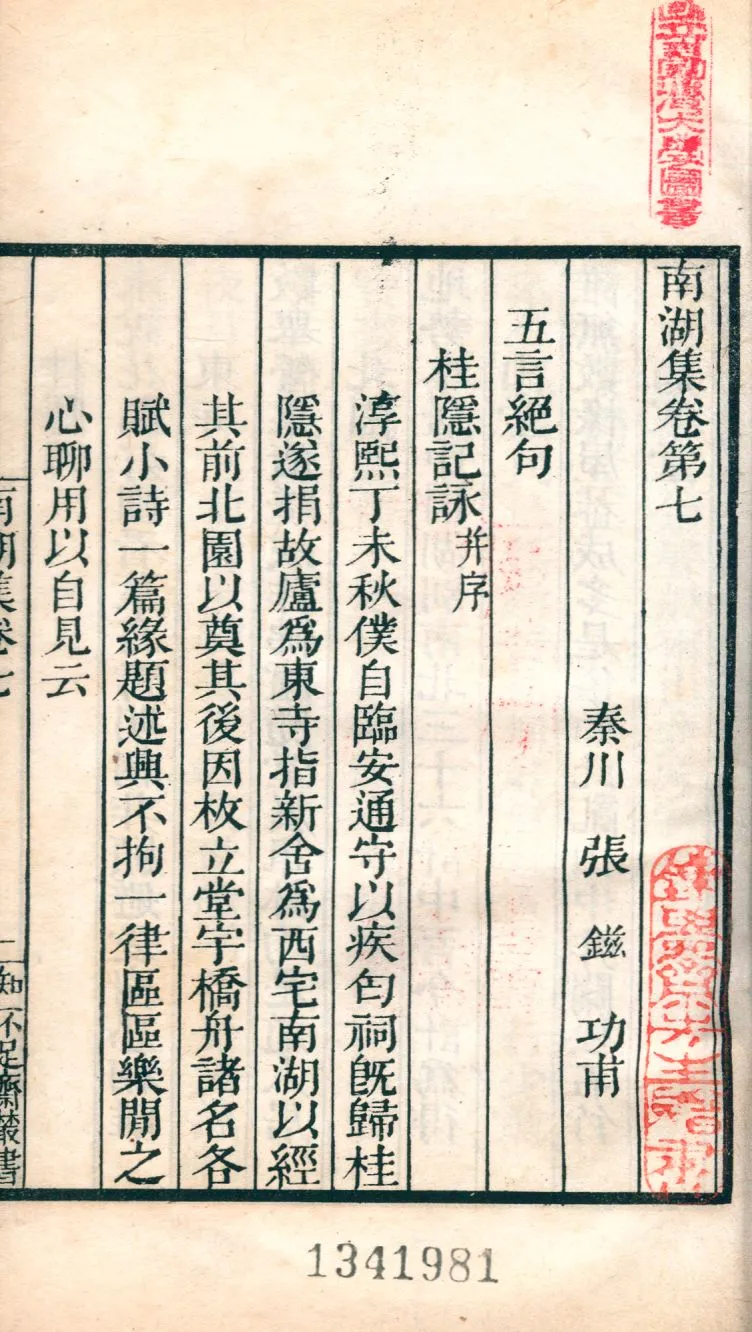 南湖集卷第七
秦川 張 鎡 功甫
五言絕句
桂隱記詠并序
淳熙丁未秋僕自臨安通守以疾匄祠旣歸桂
隱遂捐故廬爲東寺指新舍爲西宅南湖以經
其前北園以奠其後因枚立堂宇橋舟諸名各
賦小詩一篇緣題述興不拘一律區區樂閒之
心聊用以自見云
南湖集卷七
一 知不足齋叢書
1341981